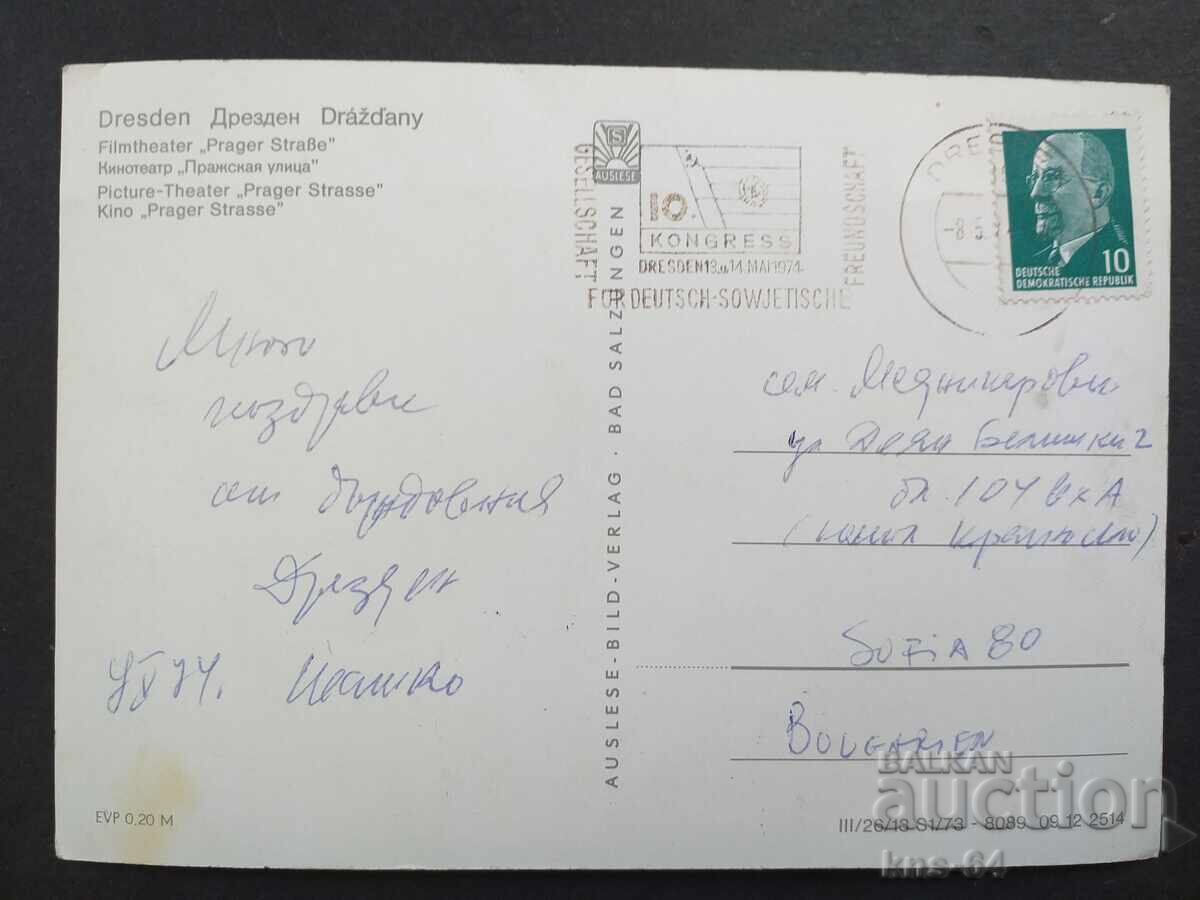 Dresden Дрезден Drážďany
Filmtheater „Prager Straße"
Кинотеатр „Пражская улица"
Picture-Theater „Prager Strasse"
Kino „Prager Strasse"
Много
поздрави
от
Дрезден
74.
EVP 0,20 M
AUSLESE-BILD-VERLAG · BAD SALZUNGEN
AUSLESE
GESELLSCHAFT
10.
KONGRESS
DRESDEN 13.u.14. MAI 1974
FÜR DEUTSCH-SOWJETISCHE
FREUNDSCHAFT
10
DEUTSCHE
DEMOKRATISCHE REPUBLIK
сем.
ул Деян Белишки 2
бл. 104 вх А
SOFIA 80
BOLGARIEN
III/26/13 S1/73 - 8089 09 12 2514
BALKAN
auction
kns-64